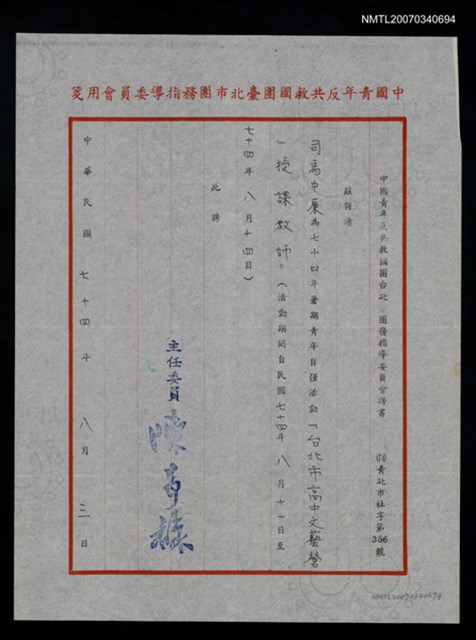 NMTL20070340694
中國青年反共救國團臺北市團務指導委員會用箋
中國青年反共救國團台北 團務指導委員會聘書
(74)青北市社字第356號
茲聘請
司馬中原為七十四年暑期青年自強活動「台北市高中文藝營
」授課教師。(活動期間自民國七十四年八月十一日至
七十四年八月十四日)
此聘
主任委員
中華民國七十四年八月二日
NMTL20070340694